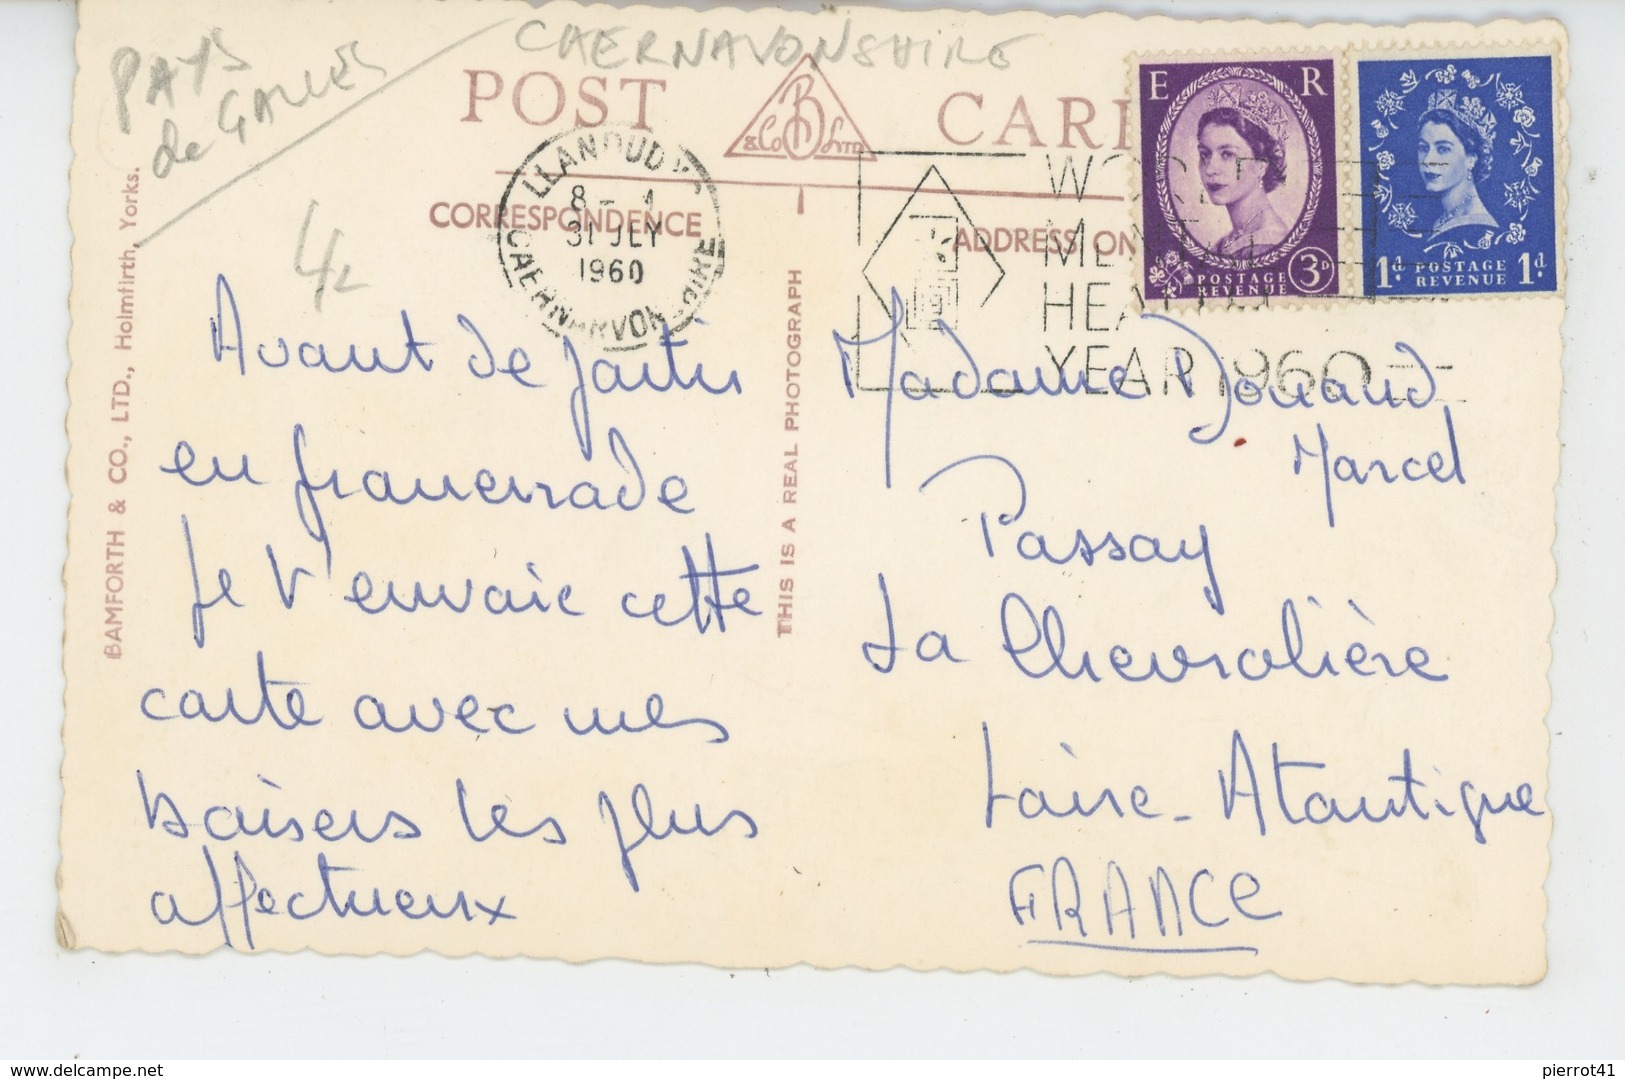 PAYS
de GALLES
CAERNAVONSHIRE
POST CAR
B
& Co LTD
CORRESPONDENCE
ADDRESS ON
LLANDUDNO
8 -
31 JLY
1960
CAERNARVONSHIRE
WORLD
MENTAL
HEALTH
YEAR 1960
E R
POSTAGE
REVENUE
3D
1d POSTAGE 1d
REVENUE
BAMFORTH & CO., LTD., Holmfirth, Yorks.
THIS IS A REAL PHOTOGRAPH
Avant de partir
en promenade
je t'envoie cette
carte avec mes
baisers les plus
affectueux
Madame Douaud
Marcel
Passay
La Chevrolière
Loire-Atlantique
FRANCE
pierrot41